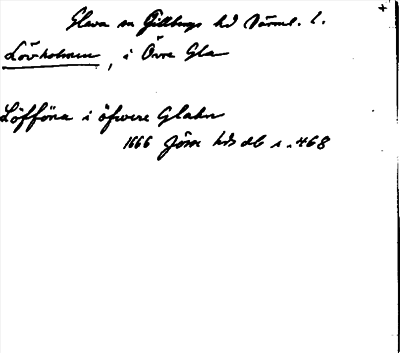 Glava sn Gillbergs hd Värml. l.
Lövholmen, i Övre Gla
Löfföna i öfwere Glahn
1666 Jösse hds db s. 468